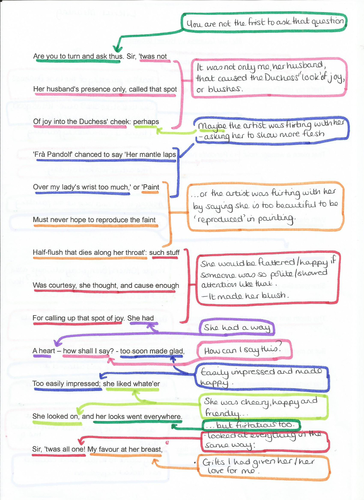 You are not the frist to ask that question
Are you to turn and ask thus. Sir, 'twas not
It was not only me, her husband,
that caused the Duchess' look of joy,
or blushes.
Her husband's presence only, called that spot
Of joy into the Duchess' cheek: perhaps
Maybe the artist was flirting with her
- asking her to show more flesh
'Frà Pandolf' chanced to say 'Her mantle laps
Over my lady's wrist too much,' or 'Paint
...or the artist was flirting with her
by saying she is too beautiful to be
'reproduced' in painting.
Must never hope to reproduce the faint
Half-flush that dies along her throat': such stuff
She would be flattered/happy if
someone was so polite/showed
attention like that.
- It made her blush.
Was courtesy, she thought, and cause enough
For calling up that spot of joy. She had
She had a way
A heart – how shall I say? - too soon made glad,
How can I say this?
Easily impressed and made
happy.
Too easily impressed; she liked whate'er
She was cheery, happy and
friendly...
She looked on, and her looks went everywhere.
...but flirtatious too
-looked at everything in the
same way.
Sir, 'twas all one! My favour at her breast,
Gifts I had given her/her
love for me